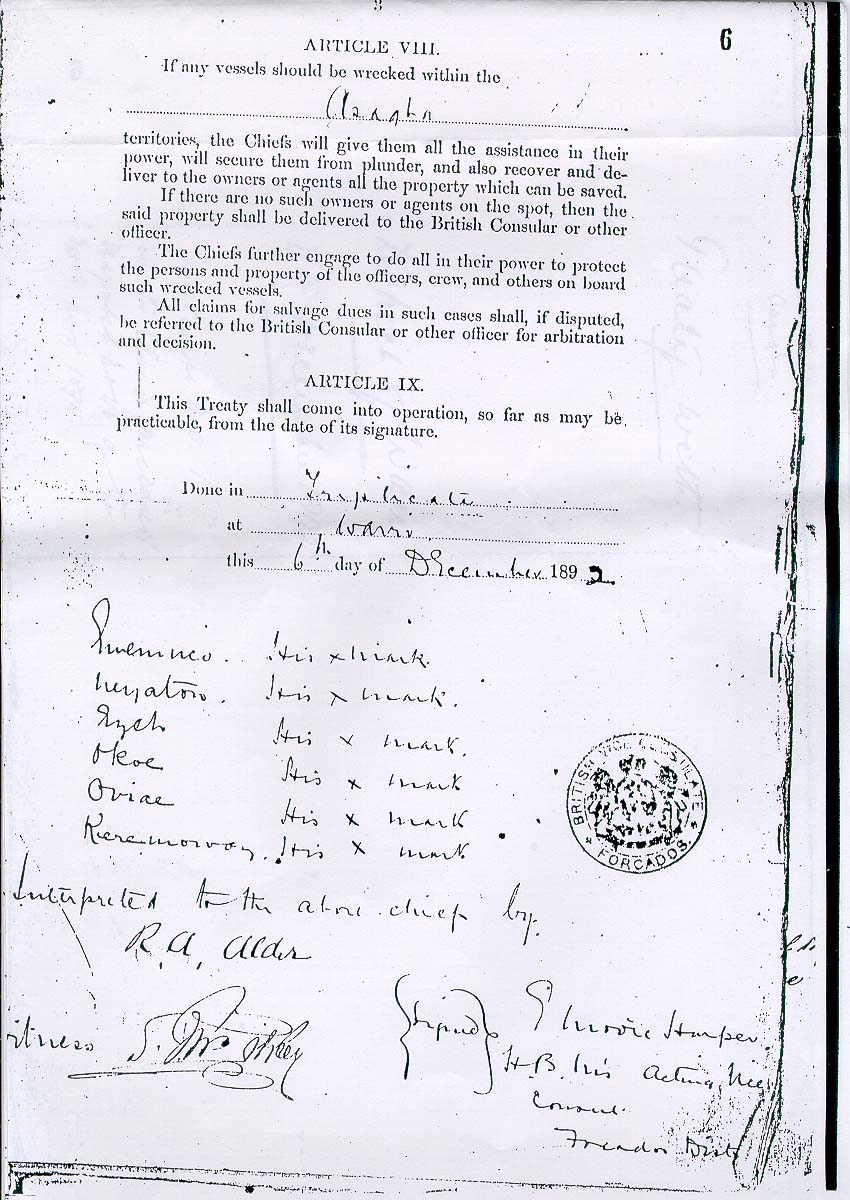 6
ARTICLE VIII.
If any vessels should be wrecked within the
territories, the Chiefs will give them all the assistance in their
power, will secure them from plunder, and also recover and de-
liver to the owners or agents all the property which can be saved.
If there are no such owners or agents on the spot, then the
said property shall be delivered to the British Consular or other
officer.
The Chiefs further engage to do all in their power to protect
the persons and property of the officers, crew, and others on board
such wrecked vessels.
All claims for salvage dues in such cases shall, if disputed,
be referred to the British Consular or other officer for arbitration
and decision.
ARTICLE IX.
This Treaty shall come into operation, so far as may be
practicable, from the date of its signature.
Done in Triplicate
at Warri
this 6th day of December 1892
His x mark.
His x mark.
His x mark.
Okoe His x mark
Oviae His x mark
His x mark
BRITISH VICE CONSULATE
FORCADOS.
Interpreted to the above chiefs by.
R. A. Alder
itness
Signed
Moore Harper.
H.B.M's Acting Vice
Consul.
Forcados